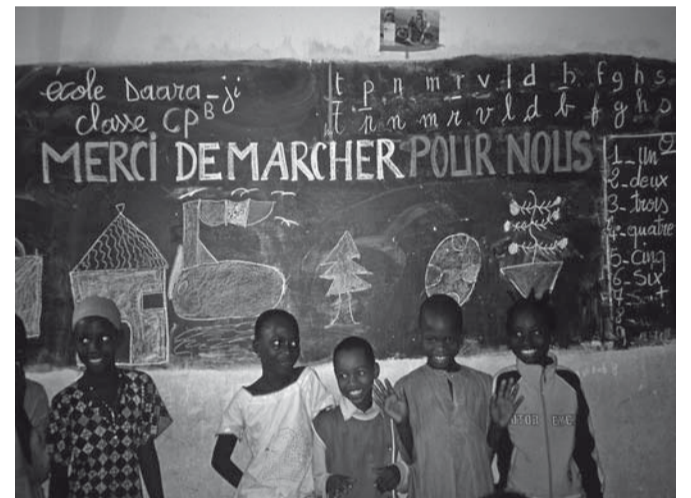 école Daara-ji
classe CP B
t p n m r v l d b f g h s
t p n m r v l d b f g h s
MERCI DE MARCHER POUR NOUS
1_un
2_deux
3_trois
4_quatre
5_cinq
6_Six